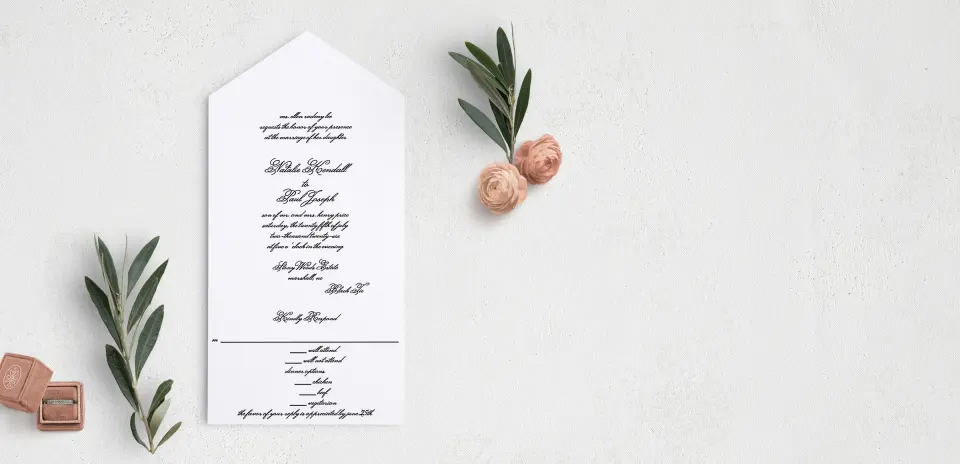 ms. ellen rodney lee
requests the honor of your presence
at the marriage of her daughter
Natalie Kendall
to
Paul Joseph
son of mr. and mrs. henry price
saturday, the twenty fifth of july
two-thousand twenty-six
at five o'clock in the evening
Stony Woods Estate
marshall, nc
Black Tie
Kindly Respond
m
will attend
will not attend
dinner options
chicken
beef
vegetarian
the favor of your reply is appreciated by june 25th